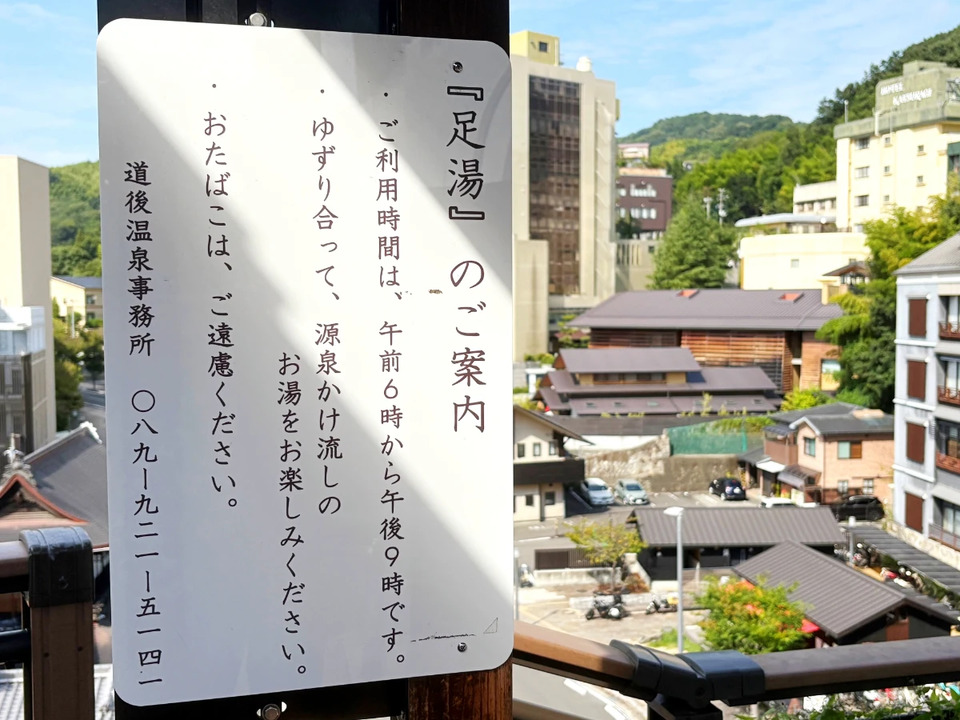 『足湯』のご案内
・ご利用時間は、午前6時から午後9時です。
・ゆずり合って、源泉かけ流しの
お湯をお楽しみください。
・おたばこは、ご遠慮ください。
道後温泉事務所 〇八九ー九二一ー五一四一
HOTEL